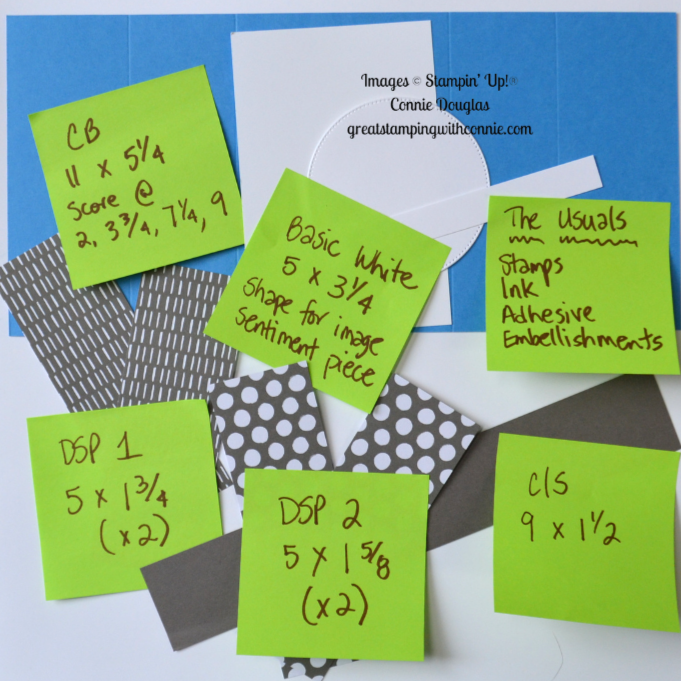 Images © Stampin' Up!®
Connie Douglas
greatstampingwithconnie.com
CB
11 x 5 1/4
Score @
2, 3 3/4, 7 1/4, 9
Basic White
5 x 3 1/4
shape for image
sentiment piece
The Usuals
Stamps
Ink
Adhesive
Embellishments
DSP 1
5 x 1 3/4
(x2)
DSP 2
5 x 1 5/8
(x2)
C/S
9 x 1 1/2